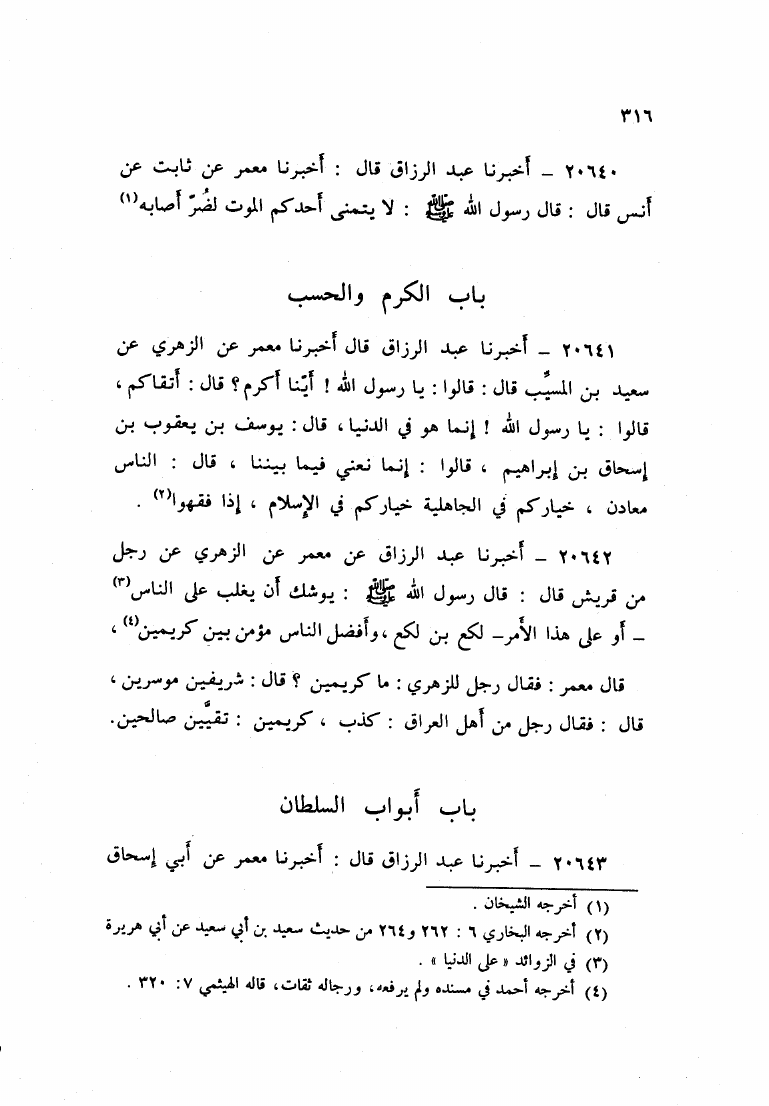 ٣١٦
٢٠٦٤٠ – أخبرنا عبد الرزاق قال : أخبرنا معمر عن ثابت عن
أنس قال : قال رسول الله ﷺ : لا يتمنى أحدكم الموت لضُرّ أصابه(١)
باب الكرم والحسب
٢٠٦٤١ – أخبرنا عبد الرزاق قال أخبرنا معمر عن الزهري عن
سعيد بن المسيَّب قال : قالوا : يا رسول الله ! أيّنا أكرم ؟ قال : أتقاكم ،
قالوا : يا رسول الله ! إنما هو في الدنيا ، قال : يوسف بن يعقوب بن
إسحاق بن إبراهيم ، قالوا : إنما نعني فيما بيننا ، قال : الناس
معادن ، خياركم في الجاهلية خياركم في الإسلام ، إذا فقهوا(٢) .
٢٠٦٤٢ – أخبرنا عبد الرزاق عن معمر عن الزهري عن رجل
من قريش قال : قال رسول الله ﷺ : يوشك أن يغلب على الناس(٣)
– أو على هذا الأمر– لكع بن لكع ، وأفضل الناس مؤمن بين كريمين(٤) ،
قال معمر : فقال رجل للزهري : ما كريمين ؟ قال : شريفين موسرين ،
قال : فقال رجل من أهل العراق : كذب ، كريمين : تقيَّين صالحين.
باب أبواب السلطان
٢٠٦٤٣ – أخبرنا عبد الرزاق قال : أخبرنا معمر عن أبي إسحاق
(١) أخرجه الشيخان .
(٢) أخرجه البخاري ٦ : ٢٦٢ و٢٦٤ من حديث سعيد بن أبي سعيد عن أبي هريرة
(٣) في الزوائد « على الدنيا » .
(٤) أخرجه أحمد في مسنده ولم يرفعه، ورجاله ثقات، قاله الهيثمي ٧ : ٣٢٠ .